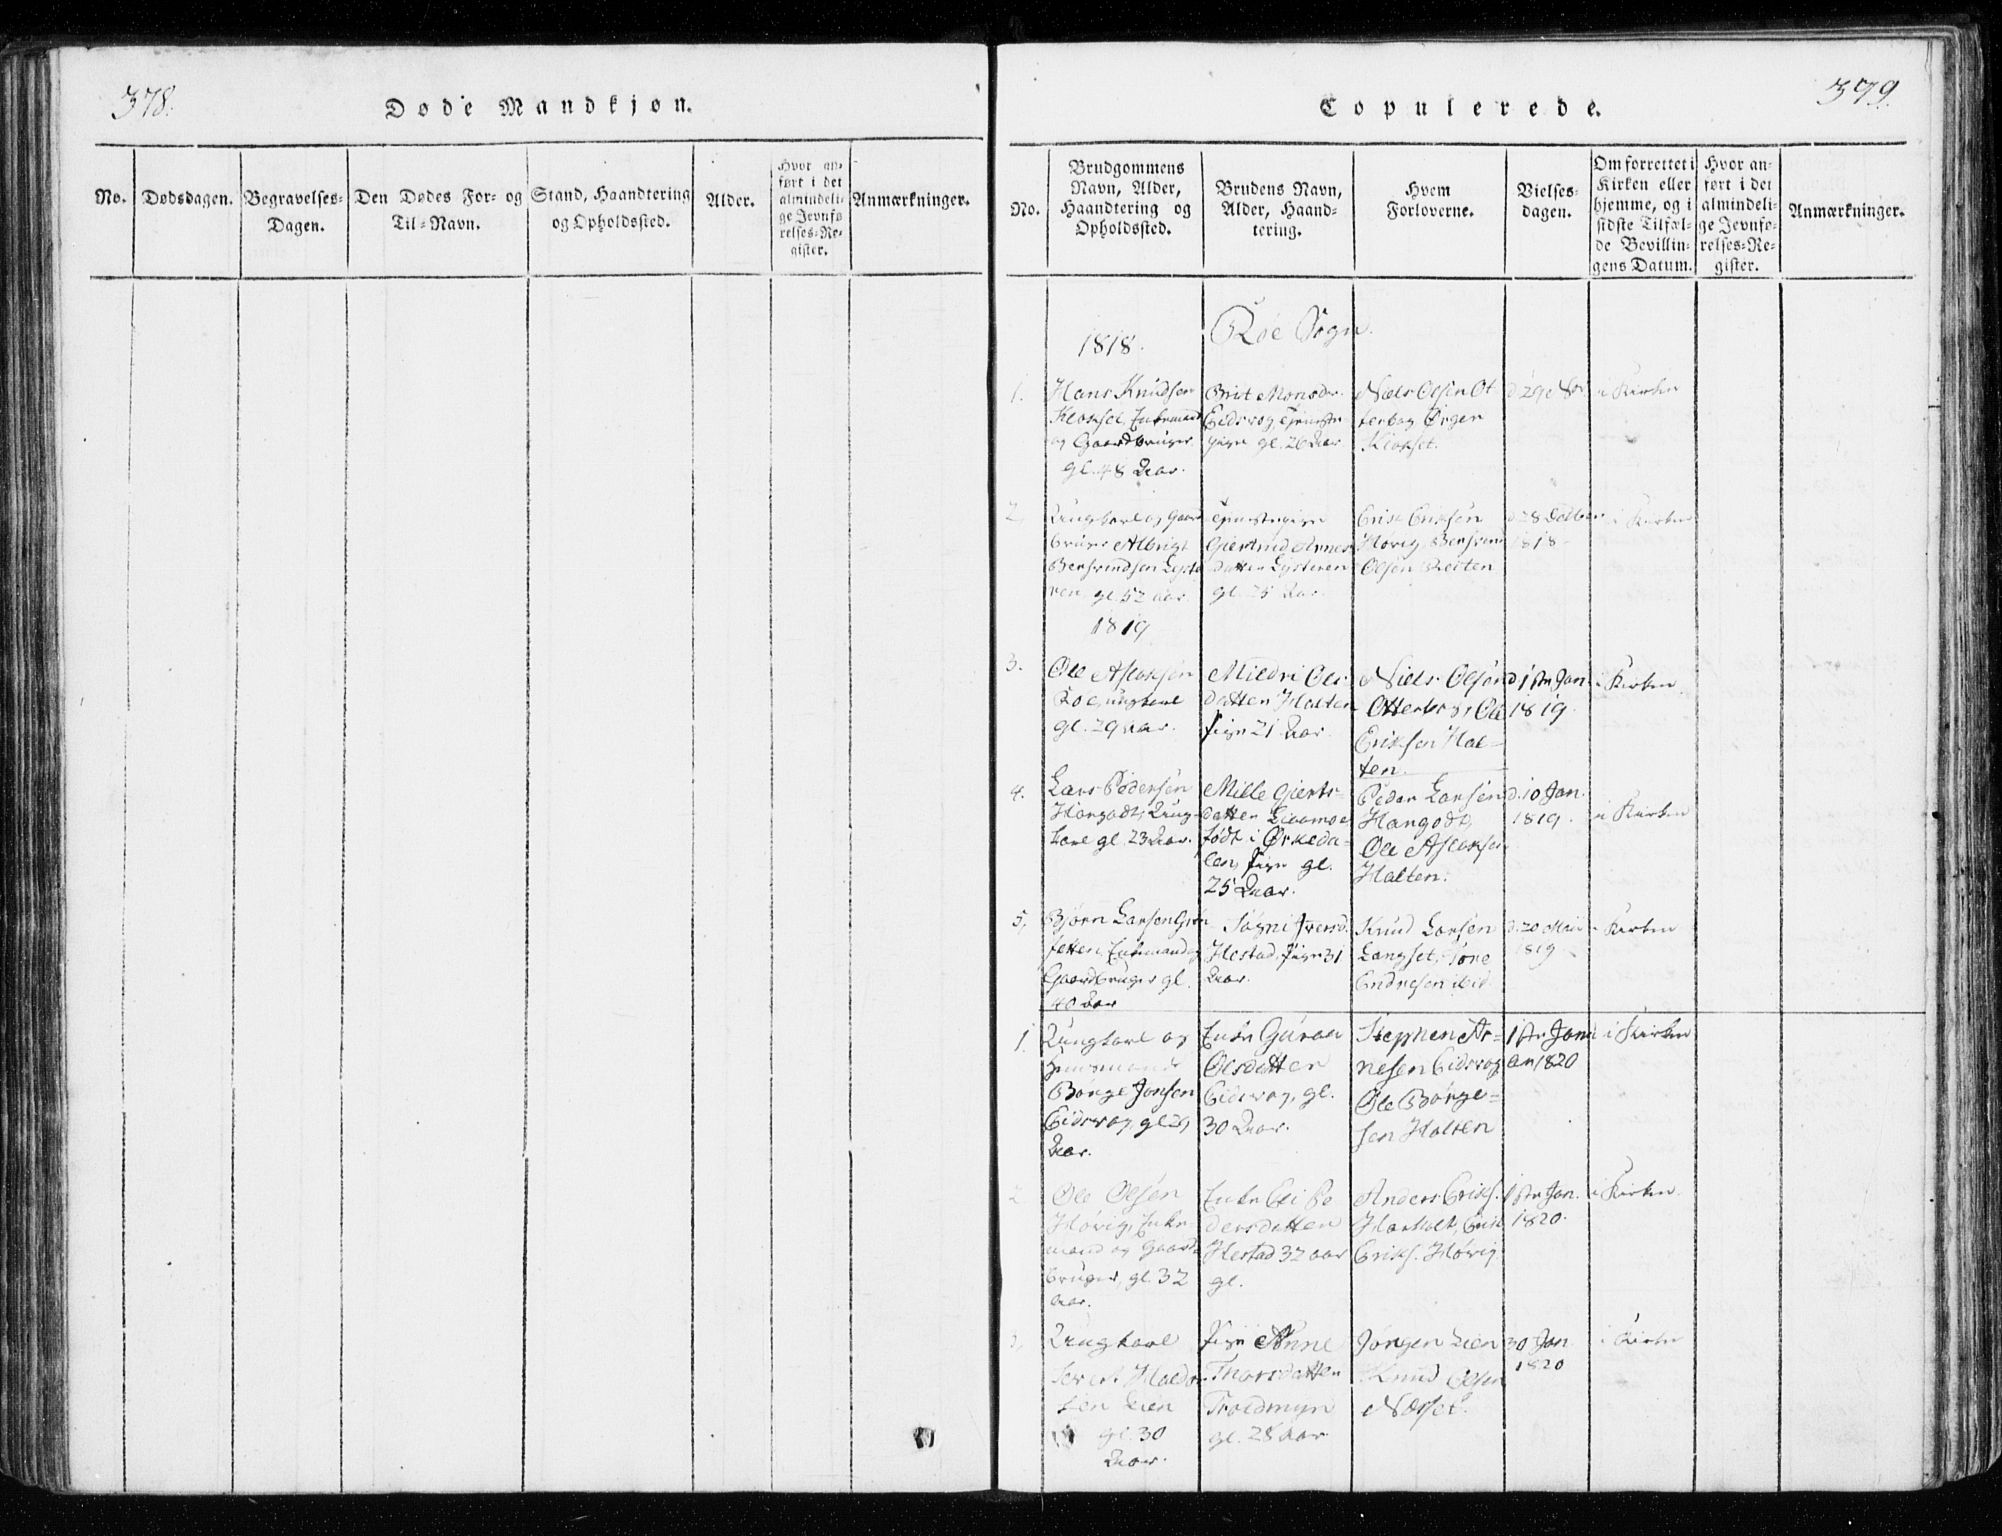 378.
Døde Mandkjøn.
No.
Dødsdagen.
Begravelses-
Dagen.
Den Dødes For- og
Til-Navn.
Stand, Haandtering
og Opholdssted.
Alder.
Hvor an-
ført i det
almindeli-
ge Jevnfø-
relses-Re-
gister.
Anmærkninger.
379.
Copulerede.
No.
Brudgommens
Navn, Alder,
Haandtering og
Opholdssted.
Brudens Navn,
Alder, Haand-
tering.
Hvem
Forloverne.
Vielses-
dagen.
Om forrettet i
Kirken eller
hjemme, og i
sidste Tilfæl-
de Bevillin-
gens Datum.
Hvor an-
ført i det
almindeli-
ge Jevnfø-
relses-Re-
gister.
Anmærkninger.
1818.
Røe Sogn.
1.
Hans Knudsen
Kloksel, Enkemand
og Gaardbruger
gl. 48 Aar.
Brit Monsdr.
Eidsvog, Tjeneste
pige gl. 26 Aar
Niels Olsen Ot
terbog Ørgen
Kloksel.
d 29 Nov
i Kirken
2,
Ungkarl og Gaard
bruger Albrigt
Bersvendsen Lyste
ren gl. 52 aar.
Tjenestepige
Giertrud Arnes
datter Lysteren
gl. 25 Aar.
Erik Eriksen
Høvig, Bersvend
Olsen Reiten
d 28 Octber
1818
i Kirken
1819
3.
Ole Aslaksen
Roe, ungkarl
gl. 29 aar.
Mildri Ols
datter Halten
Pige 21 Aar.
Niels Olsen
Otterb og Ole
Eriksen Hal-
ten.
d 1ste Jan.
1819.
i Kirken
4.
Lars Pedersen
Hangodt, Ung-
karl gl. 23 Aar.
Mille Gierts-
datter Lioamoe
født i Ørkeda-
len, Pige gl.
25 Aar.
Peder Larsen
Hangodt,
Ole Aslaksen
Halten.
d. 10 Jan.
1819.
i Kirken
5,
Bjørn Larsen
Enkemand og
Gaardbruger gl.
40 Aar
Iversd.
Hestad, Pige 31
Aar.
Knud Larsen
Langset, Tore
Endresen ibid.
d. 20 Mai
1819
i Kirken
1.
Ungkarl og
Huusmand
Børge Jonsen
Eidsvog, gl.
Aar.
Enke Guroa
Olsdatter
Eidsvog, gl.
30 Aar.
Stephen Ar-
nesen Eidsvog
Ole Børge-
sen Halten
1ste Janu
ar 1820
i Kirken
2
Ole Olsen
Høvig, Enke
mand og Gaard-
bruger, gl. 32
aar.
Enke Eli Pe
dersdatter
Hestad 32 aar
gl.
Anders Eriks.
Harholt, Erik
Eriks. Høvig
1ste Jan.
1820.
i Kirken
3,
Ungkarl
Sivert Haldor
sen Lien
gl. 30
Aar.
Pige Anne
Thorsdatter
Troldmyr
gl. 28 Aar
Jørgen Lien
Knud Olsen
Nerset.
30 Jan
1820
i Kirken